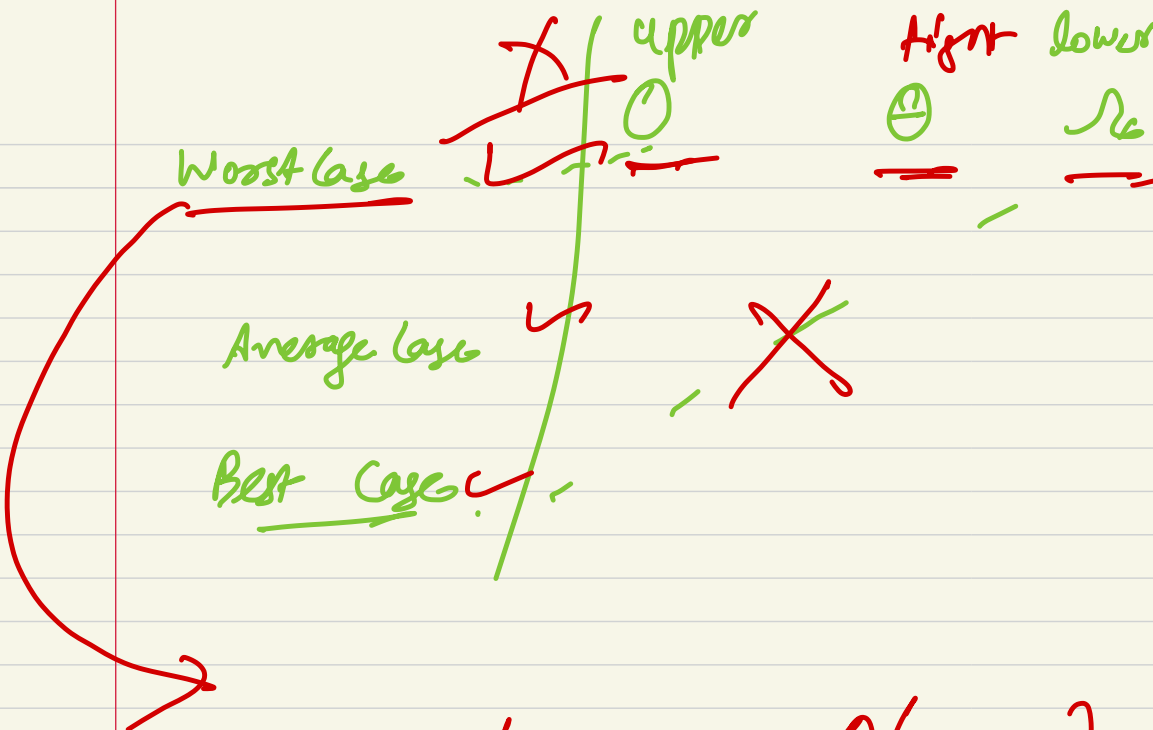 upper Tight lower
O Θ Ω
Worst Case
Average Case
Best Case